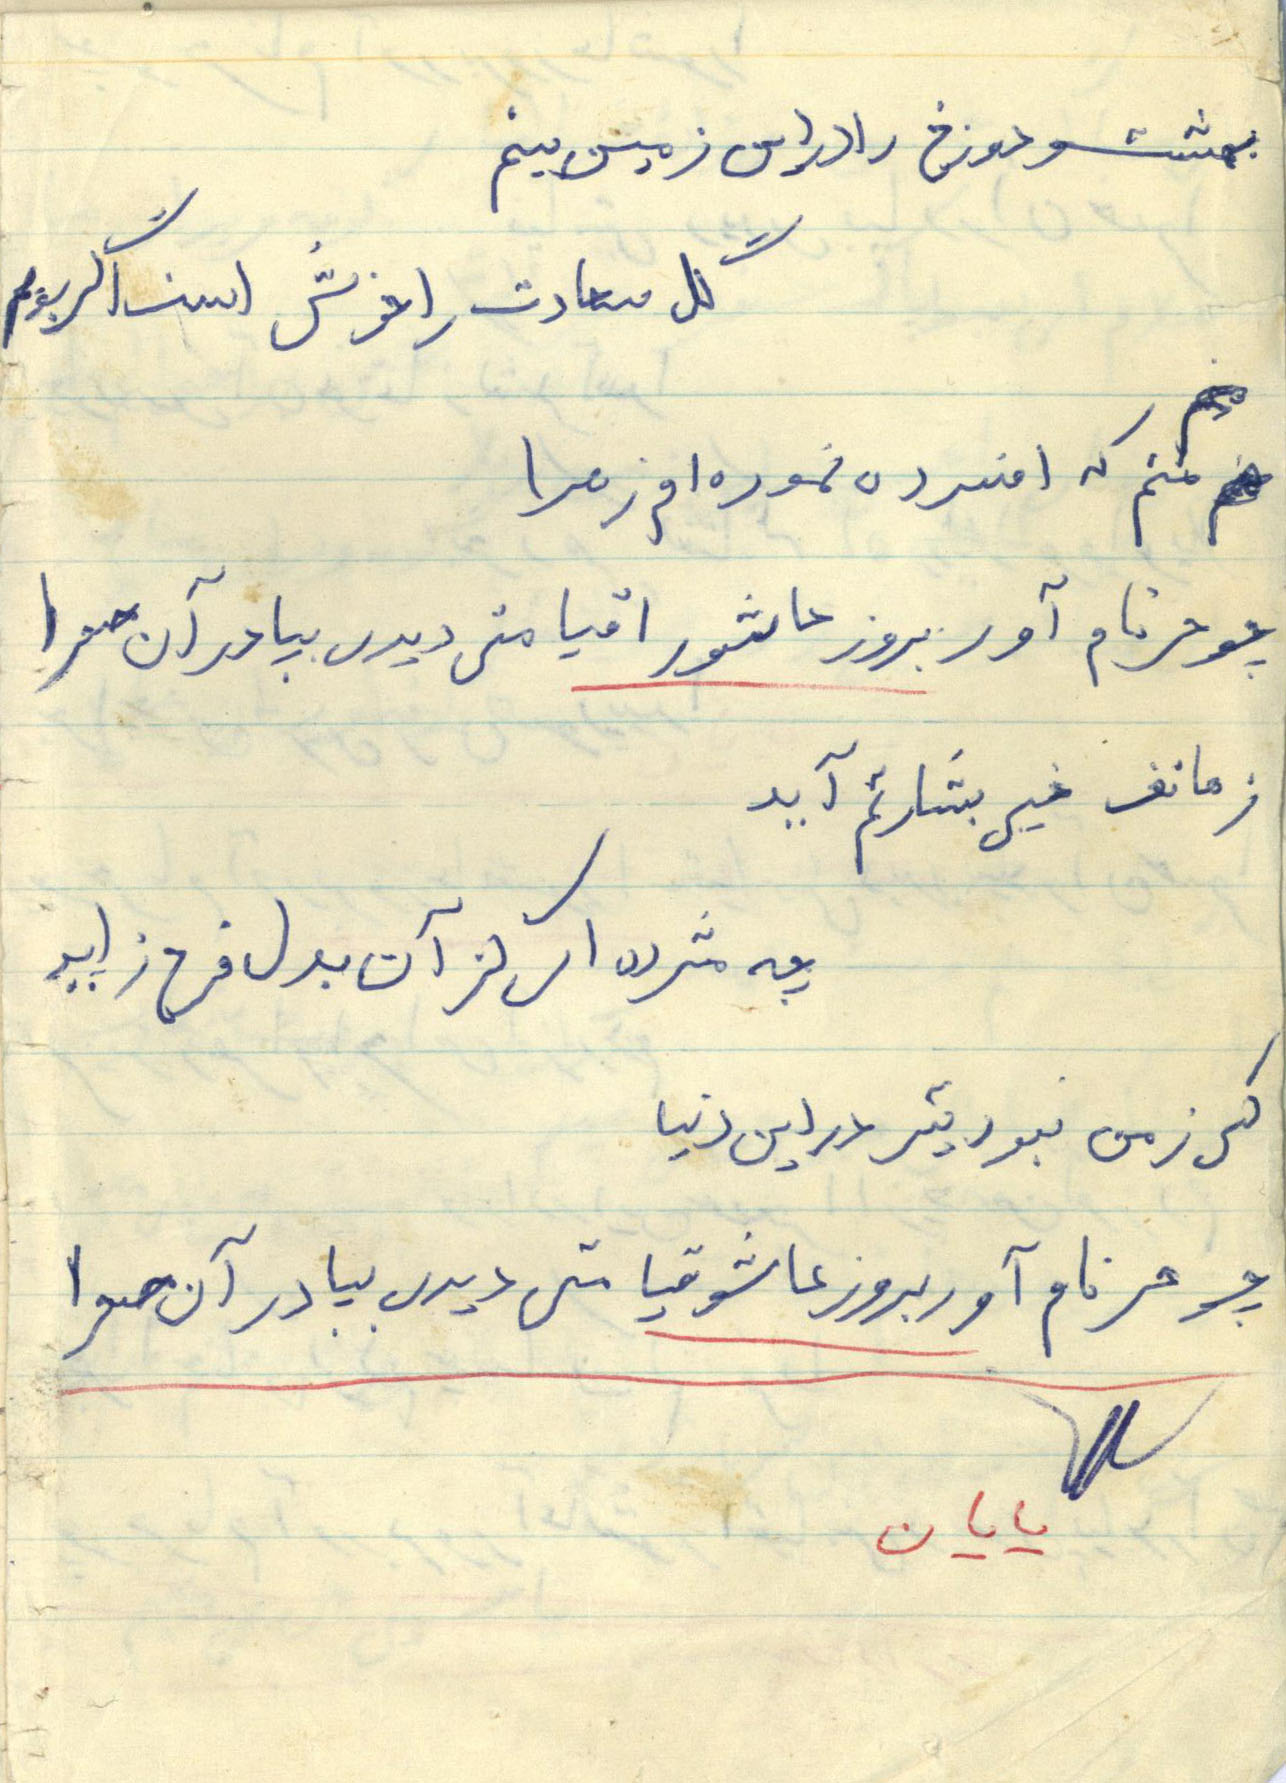 بهشت و دوزخ را در این زمین بینم
گل سعادت را خوش است اگر بویم
منم که افسرده نموده ام زهرا
چو حر نام آور بروز عاشورا قیامتی دیدی بپا در آن صحرا
ز هاتف غیبی بشارتم آید
چه مژده ای کز آن بدل فرح زاید
کسی ز من نبود بتر در این دنیا
چو حر نام آور بروز عاشو قیامتی دیدی بپا در آن صحرا
پایان